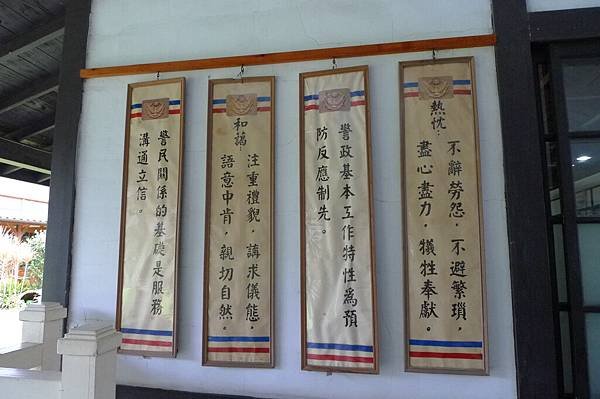 熱忱：
不辭勞怨，不避繁瑣，
盡心盡力，犧牲奉獻。
警政基本工作特性為預
防反應制先。
和藹：
注重禮貌，講求儀態，
語意中肯，親切自然。
警民關係的基礎是服務
溝通立信。